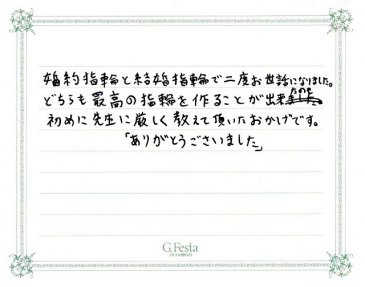 婚約指輪と結婚指輪で二度お世話になりました。
どちらも最高の指輪を作ることが出来たのも
初めに先生に厳しく教えて頂いたおかげです。
「ありがとうございました」
G.Festa
DIAMOND